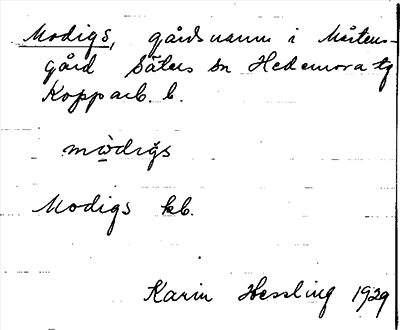 Modigs, gårdsnamn i Mårtens-
gård Säters sn Hedemora tg
Kopparb. l.
mωdigs
Modigs kb.
Karin Hessling 1929